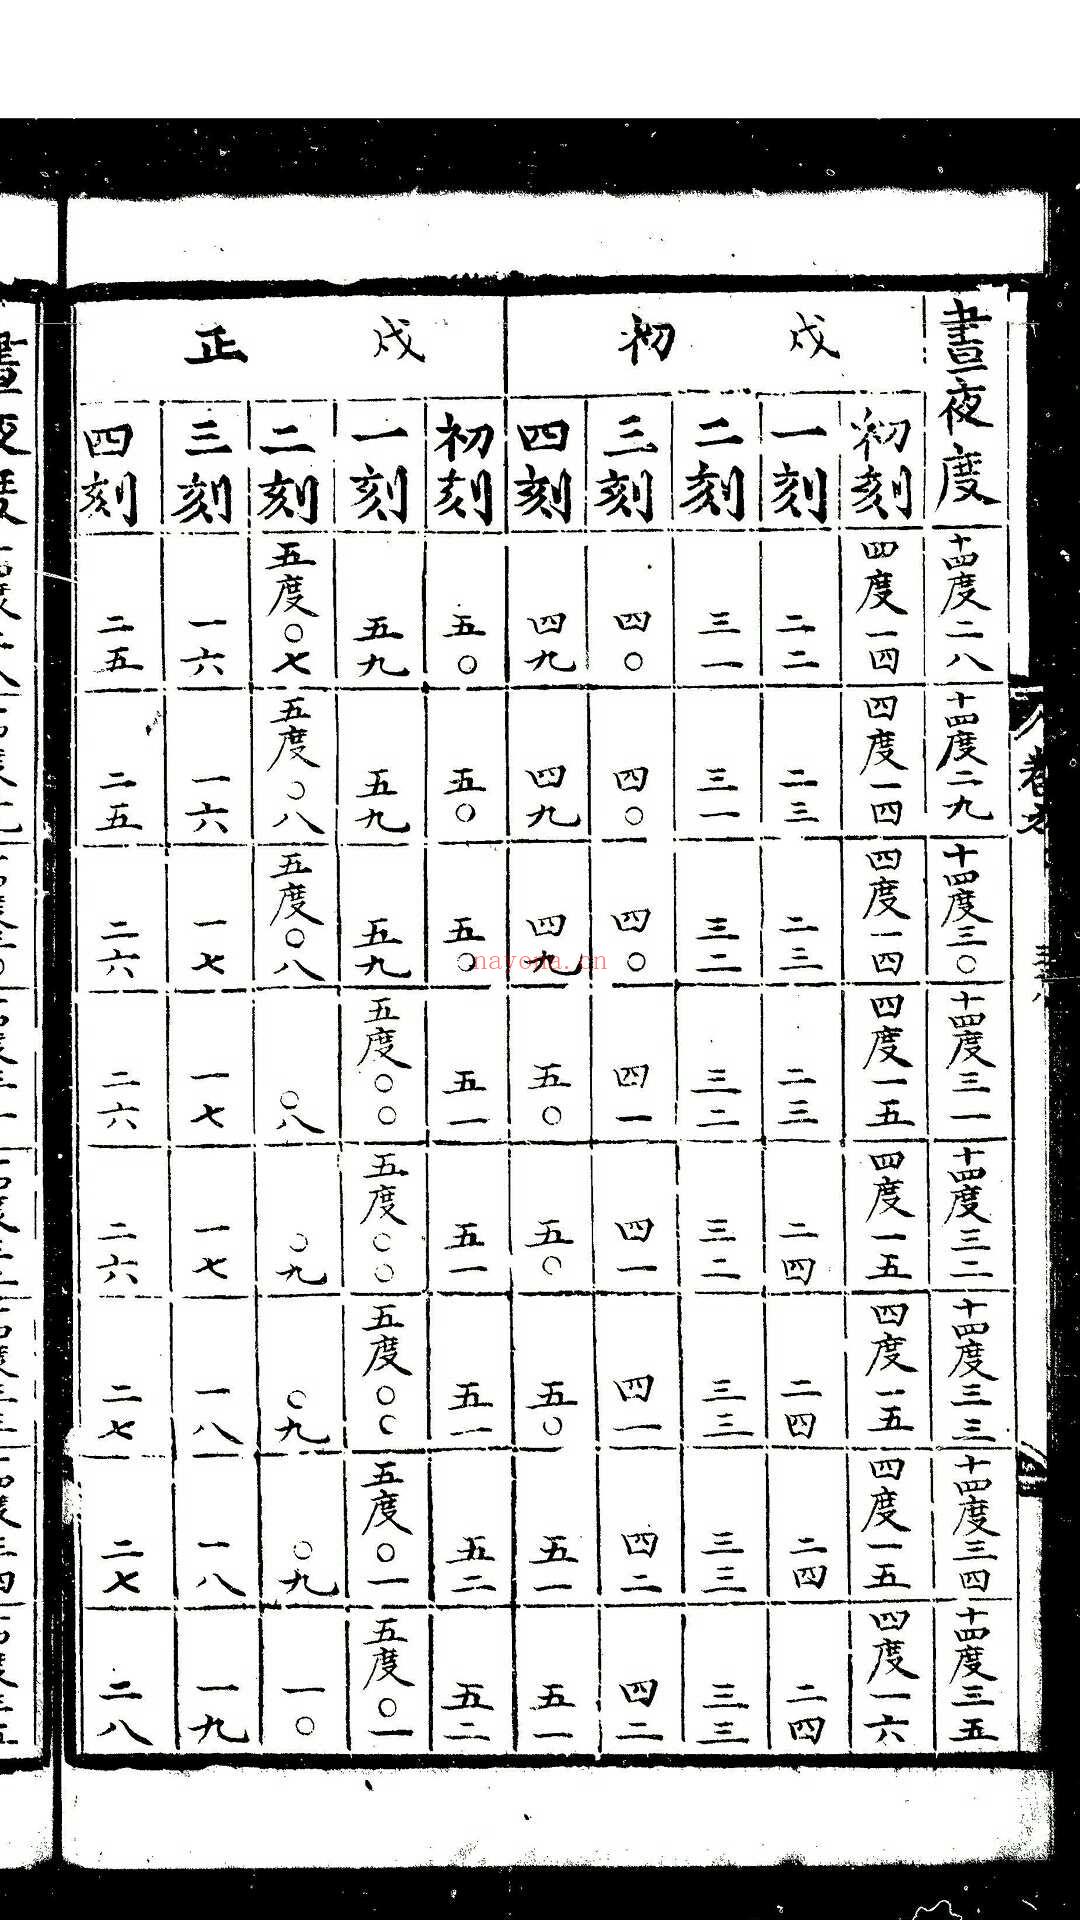 晝夜度 十四度二八 十四度二九 十四度三〇 十四度三一 十四度三二 十四度三三 十四度三四 十四度三五
戌初
初刻 四度一四 四度一四 四度一四 四度一五 四度一五 四度一五 四度一五 四度一六
一刻 二二 二三 二三 二三 二四 二四 二四 二四
二刻 三一 三一 三二 三二 三二 三三 三三 三三
三刻 四〇 四〇 四〇 四一 四一 四一 四二 四二
四刻 四九 四九 四九 五〇 五〇 五〇 五一 五一
戌正
初刻 五〇 五〇 五〇 五一 五一 五一 五二 五二
一刻 五九 五九 五九 五度〇〇 五度〇〇 五度〇〇 五度〇一 五度〇一
二刻 五度〇七 五度〇八 五度〇八 〇八 〇九 〇九 〇九 一〇
三刻 一六 一六 一七 一七 一七 一八 一八 一九
四刻 二五 二五 二六 二六 二六 二七 二七 二八
nayona.cn